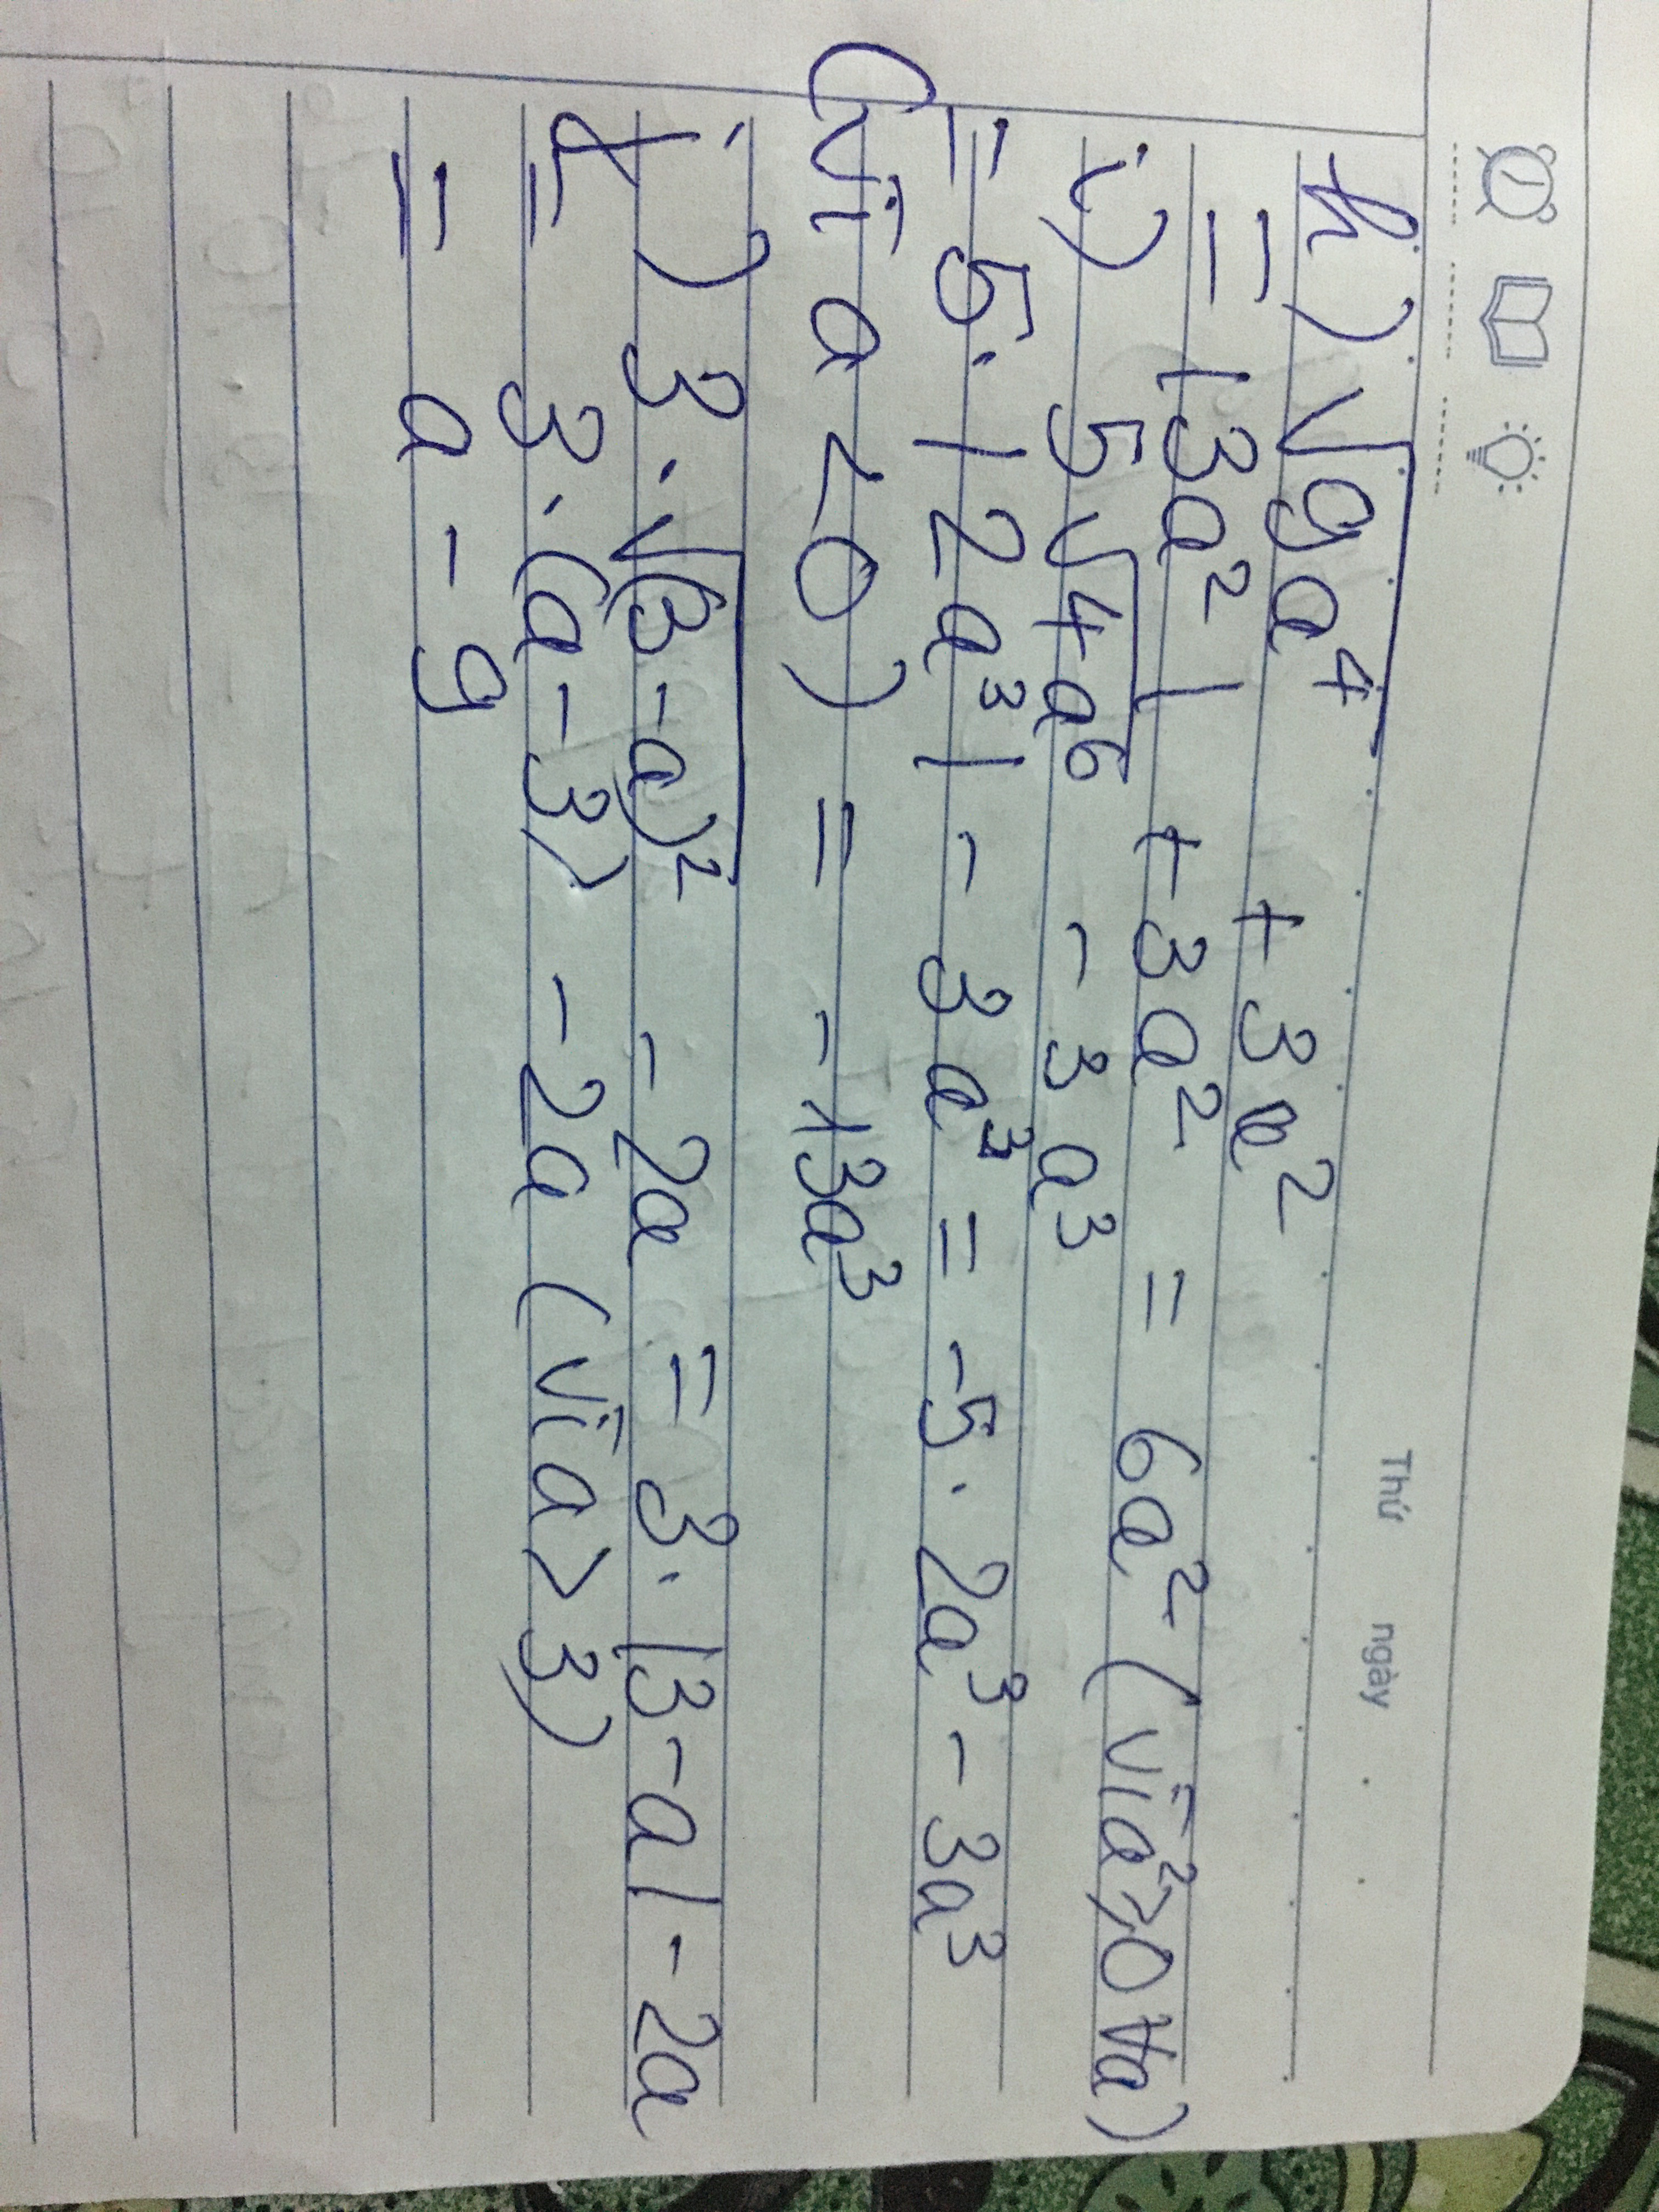 Thứ ngày
h) √9a⁴ + 3a²
= |3a²| + 3a² = 6a² (vì a² ≥ 0 ∀a)
i) 5√4a⁶ - 3a³
= 5.|2a³| - 3a³ = -5.2a³ - 3a³
(vì a < 0) = -13a³
j) 3.√(3-a)² - 2a = 3.|3-a| - 2a
= 3.(a-3) - 2a (vì a > 3)
= a - 9